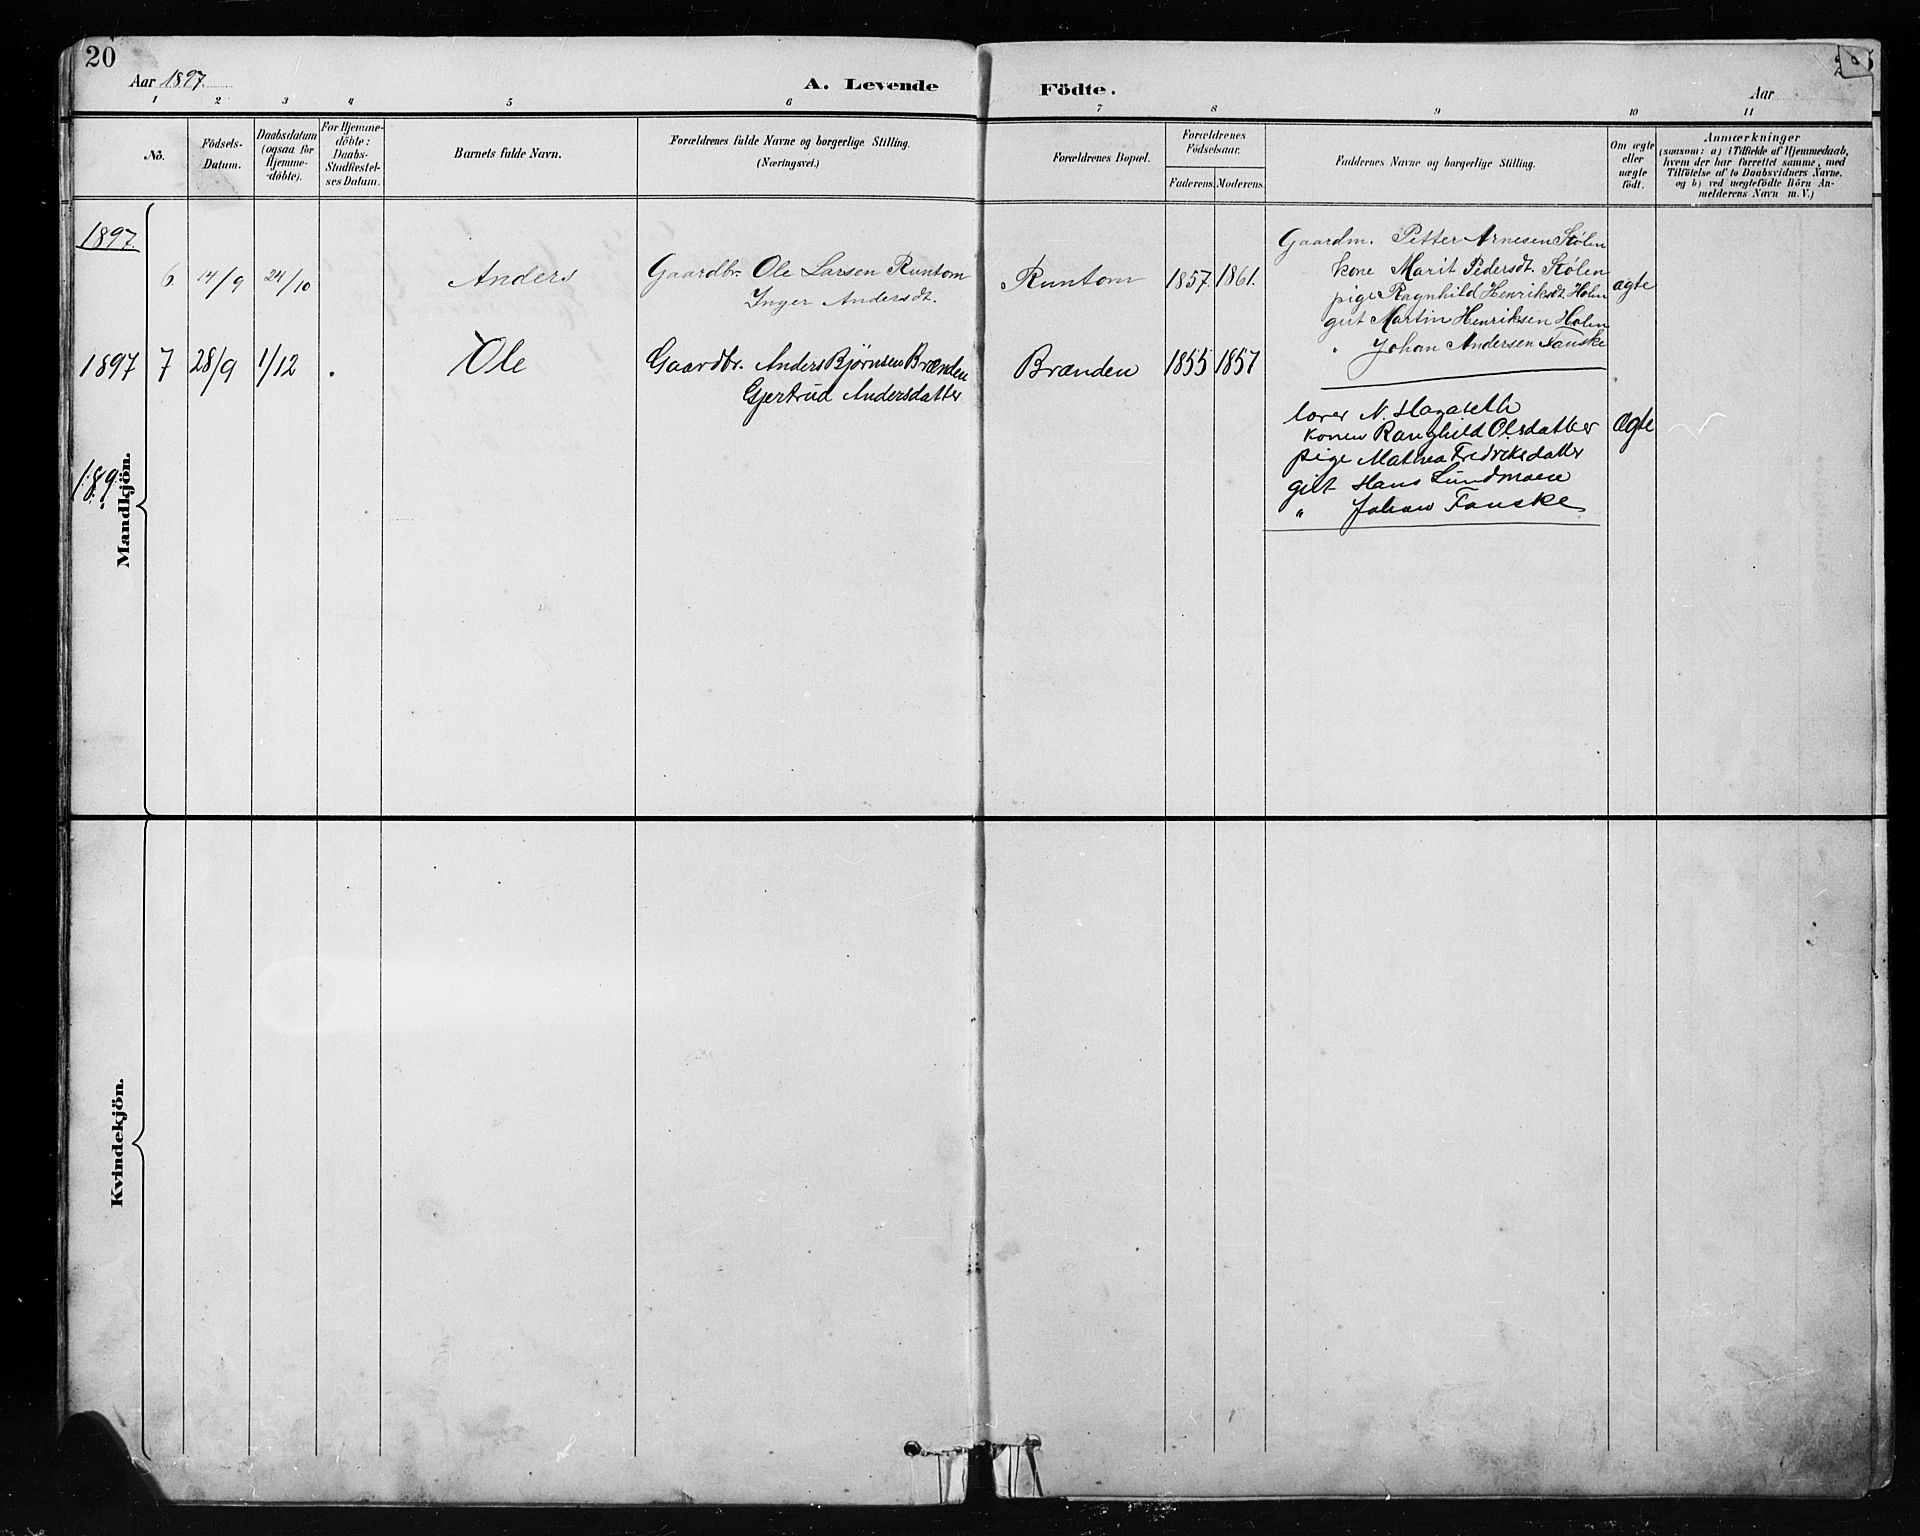 20
Aar 1897.
A. Levende Födte.
Aar
1 2 3 4 5 6 7 8 9 10 11
No.
Födsels-
Datum.
Daabsdatum
(ogsaa for
Hjemme-
döbte).
For Hjemme-
döbte:
Daabs-
Stadfæstel-
ses Datum.
Barnets fulde Navn.
Forældrenes fulde Navne og borgerlige Stilling.
(Næringsvei.)
Forældrenes Bopæl.
Forældrenes
Födselsaar.
Faderens. Moderens.
Faddernes Navne og borgerlige Stilling.
Om ægte
eller
uægte
födt.
Anmærkninger
(saasom: a) i Tilfælde af Hjemmedaab,
hvem der har forrettet samme, med
Tilföielse af to Daabsvidners Navne,
og b) ved uægtefödte Börn An-
melderens Navn m. V.)
Mandkjön.
1897.
6 14/9 24/10 Anders
Gaardbr. Ole Larsen Runtom
Inger Andersdt.
Runtom 1857. 1861.
Gaardm. Petter Arnesen Stølen
kone Marit Pedersdt. Stølen
pige Ragnhild Henriksdt. Holen
gut Martin Henriksen Holen
" Johan Andersen Fauske
ægte
1897 7 28/9 1/12 . Ole
Gaardbr. Anders Bjørnsen Brænden
Gjertrud Andersdatter
Brænden 1855 1857
lærer N. Hagaseth
konen Ranghild Olsdatter
pige Mathea Fredriksdatter
gut Hans Lundmoen
" Johan Fauske
ægte
189
Kvindekjön.